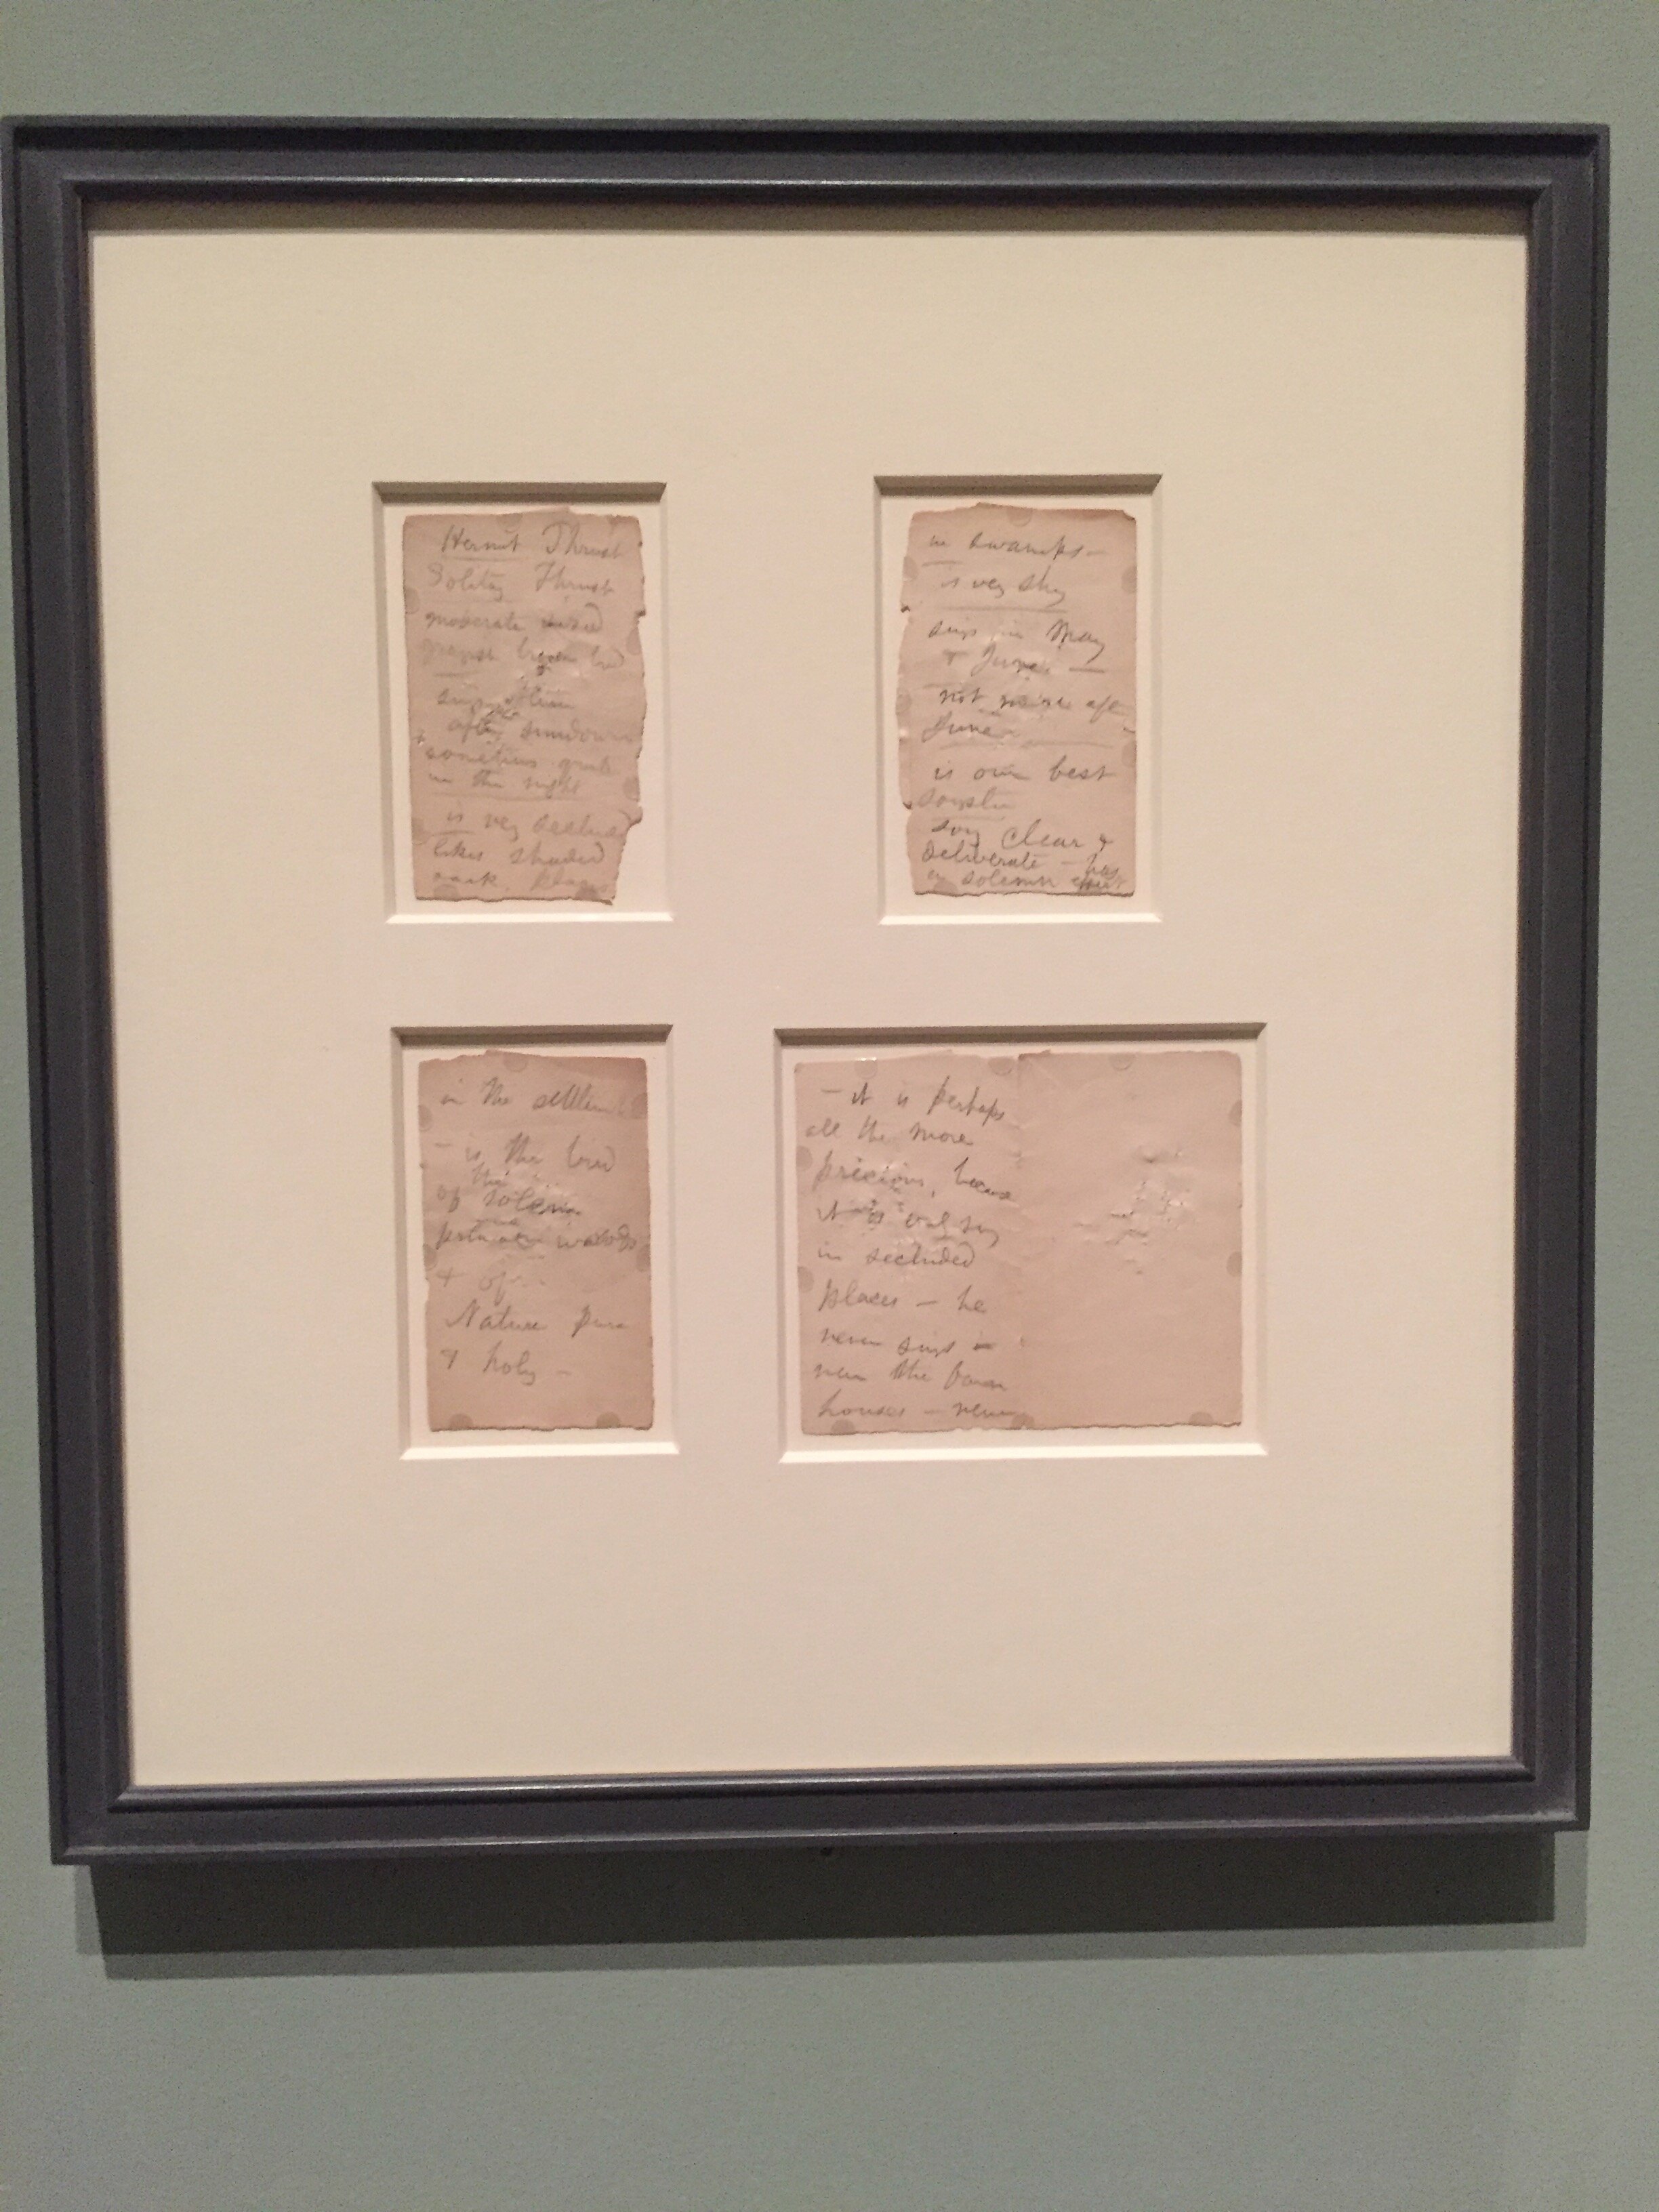 Hermit Thrush
Solitary Thrush
moderate sized
grayish brown bird
sings
after sundown
sometimes quite
in the night
is very secluded
likes shaded
dark places
in swamps —
is very shy
sings in May
& June —
not much after
June
is our best
songster
song clear &
deliberate — has
a solemn effect
— it is perhaps
all the more
precious, because
it is only sung
in secluded
places — he
never sings
near the farm
houses — never
in the settlement
— is the bird
of the solemn
primal woods
& of
Nature pure
& holy —